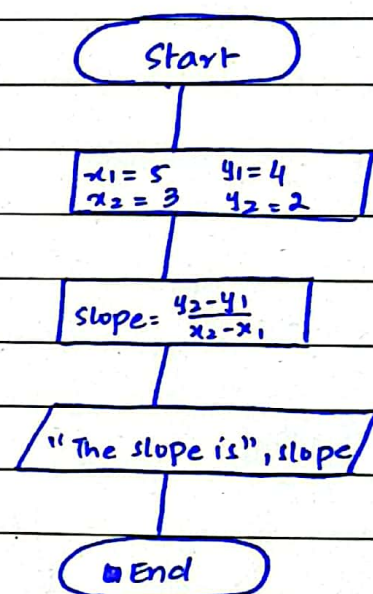 Start
x1 = 5 y1 = 4
x2 = 3 y2 = 2
slope = y2-y1
x2-x1
"The slope is", slope
End